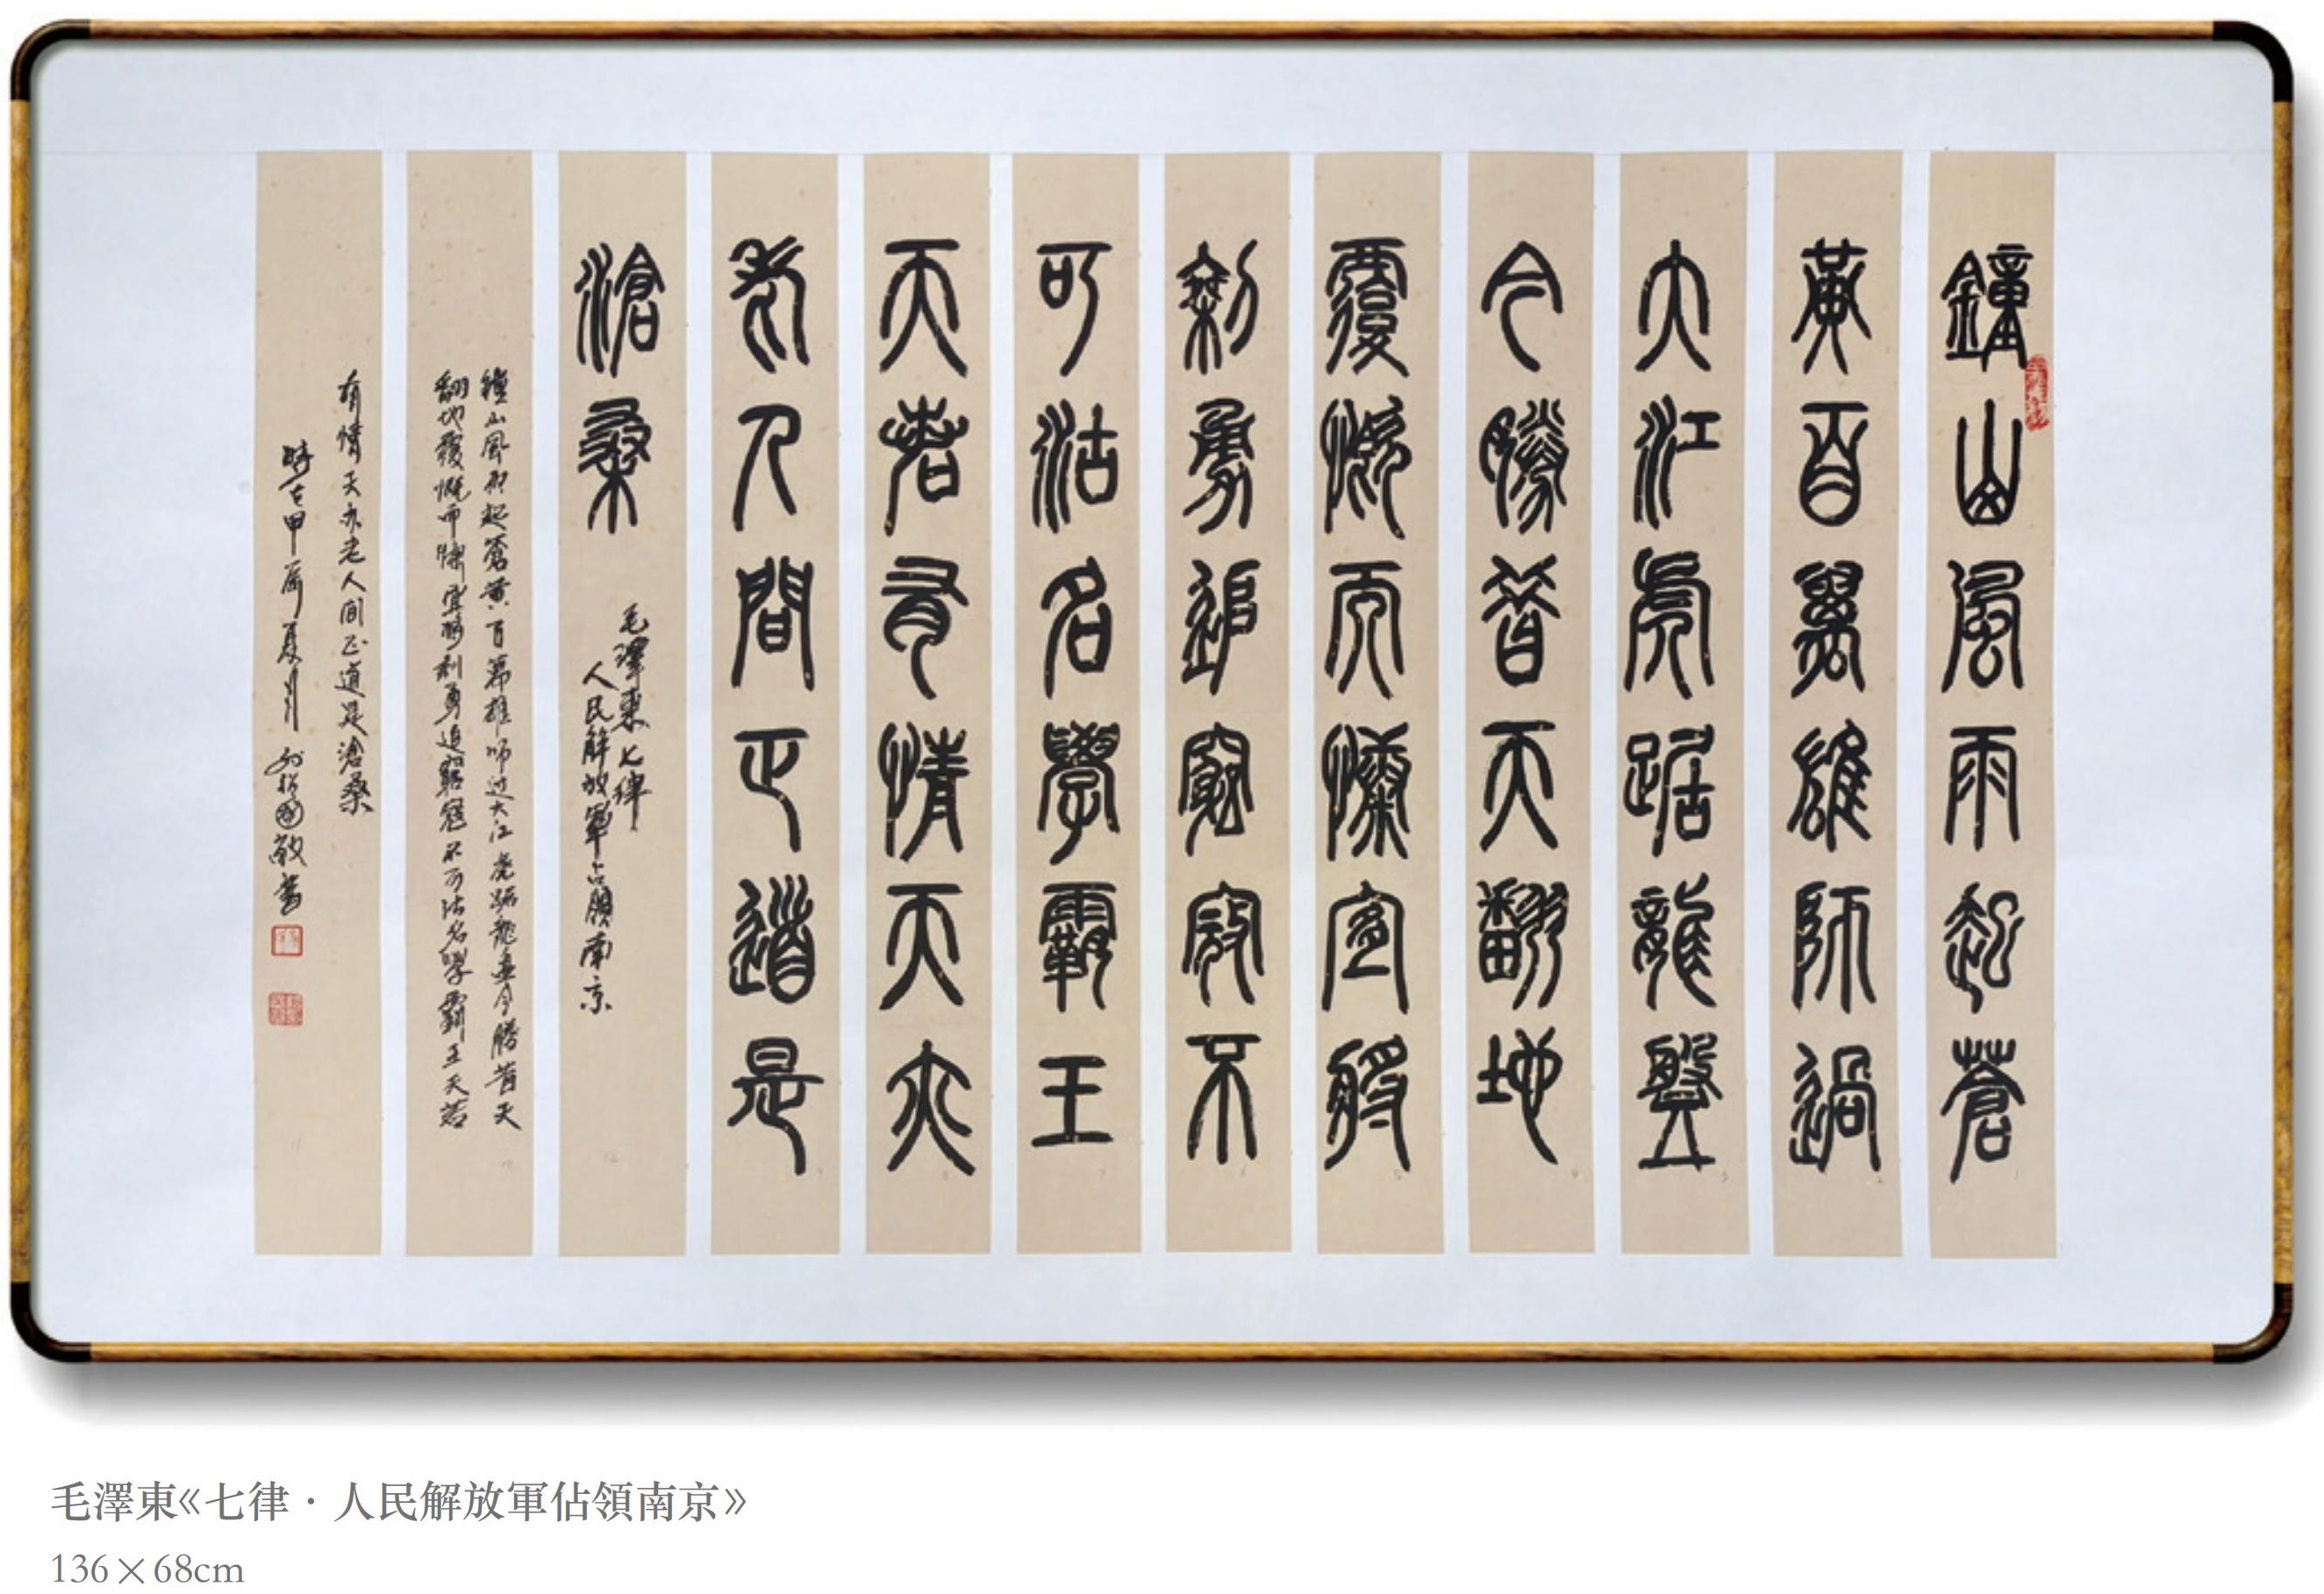 鐘山風雨起蒼
黃百萬雄師過
大江虎踞龍盤
今勝昔天翻地
覆慨而慷宜將
剩勇追窮寇不
可沽名學霸王
天若有情天亦
老人間正道是
滄桑
毛澤東七律
人民解放軍占領南京
鐘山風雨起蒼黃百萬雄师过大江虎踞龍盘今勝昔天
翻地覆慨而慷宜將剩勇追窮寇不可沽名學霸王天若
有情天亦老人間正道是滄桑
時在甲辰夏月 國敬書
毛澤東《七律·人民解放軍佔領南京》
136×68cm